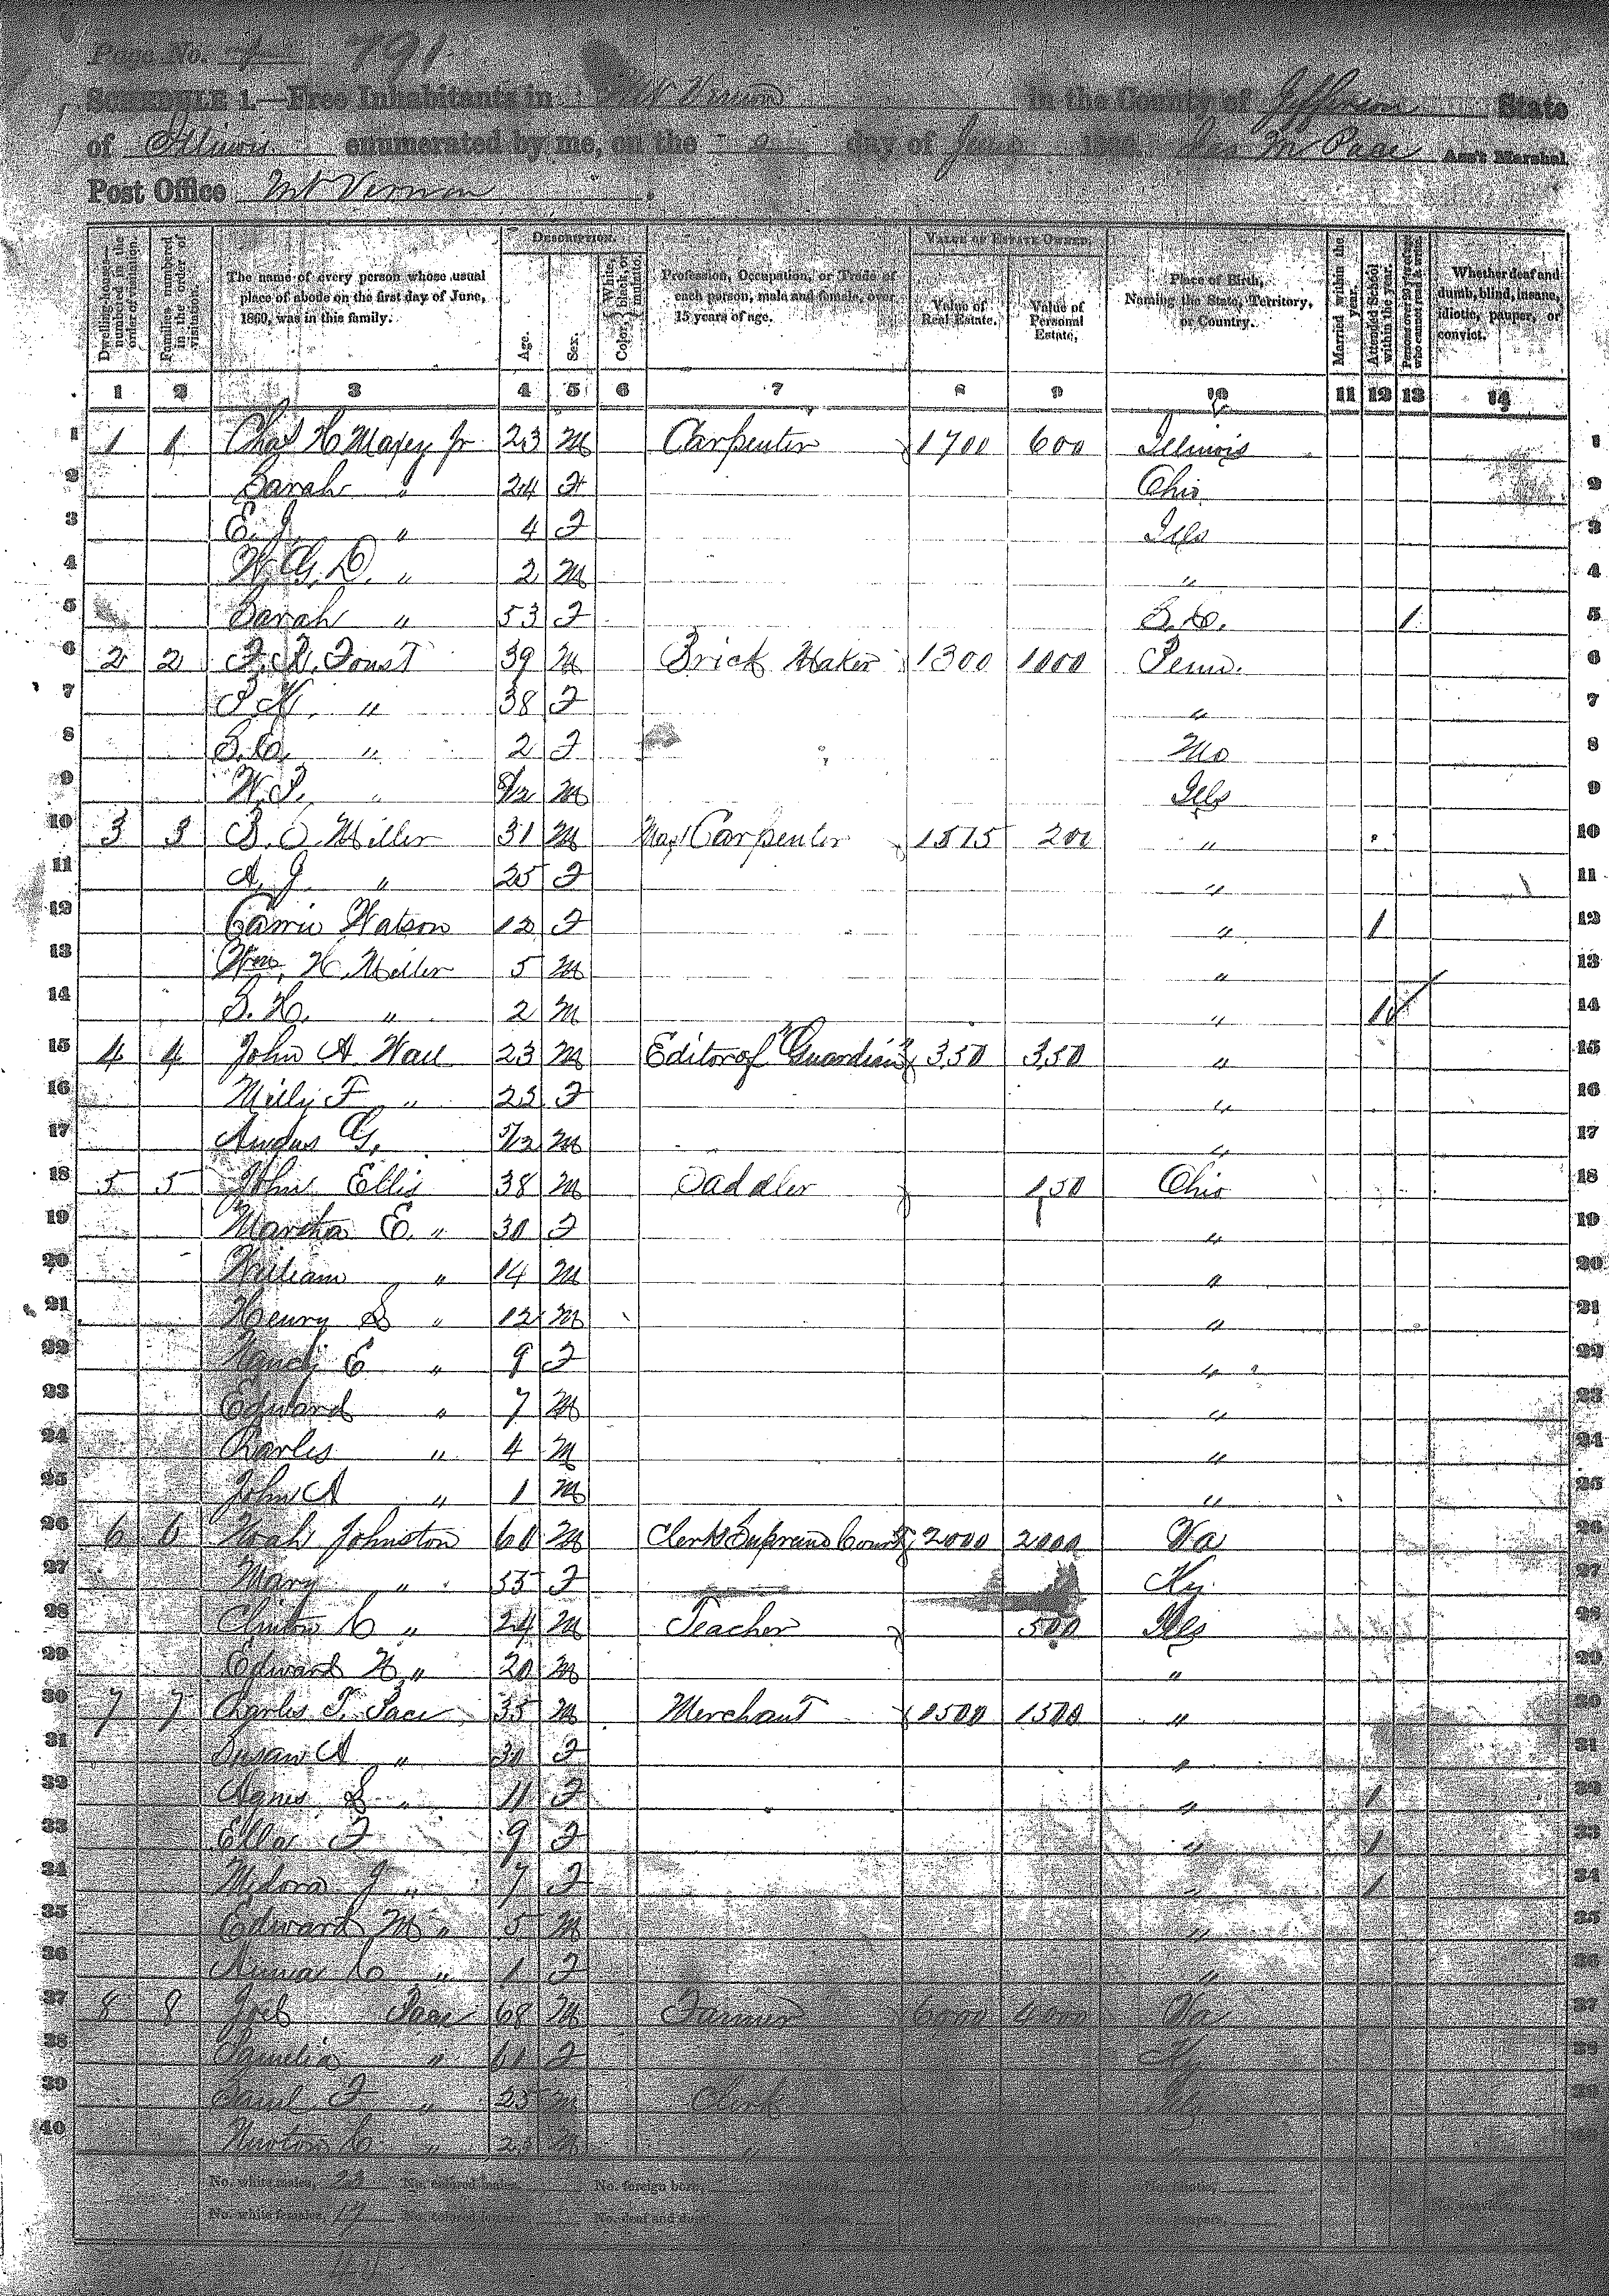 Page No. 1 791
SCHEDULE 1.—Free Inhabitants in Mt Vernon in the County of Jefferson State
of Illinois enumerated by me, on the day of June 1860. M Pace Ass't Marshal
Post Office Mt Vernon.
Dwelling-houses—numbered in the order of visitation. Families numbered in the order of visitation. The name of every person whose usual place of abode on the first day of June, 1860, was in this family. DESCRIPTION. Age. Sex. Color, White, black, or mulatto. Profession, Occupation, or Trade of each person, male and female, over 15 years of age. VALUE OF ESTATE OWNED. Value of Real Estate. Value of Personal Estate. Place of Birth, Naming the State, Territory, or Country. Married within the year. Attended School within the year. Persons over 20 y'rs of age who cannot read & write. Whether deaf and dumb, blind, insane, idiotic, pauper, or convict.
1 2 3 4 5 6 7 8 9 10 11 12 13 14
1 1 1 Chas H Maxey Jr 23 M Carpenter 1700 600 Illinois 1
2 Sarah " 24 F Ohio 2
3 E. J. " 4 F Ills 3
4 W. G. D. " 2 M " 4
5 Sarah " 53 F S.C. 1 5
6 2 2 F. R. Foust 39 M Brick Maker 1300 1000 Penn. 6
7 " 38 F " 7
8 S. E. " 2 F Mo 8
9 " 8/12 M Ills 9
10 3 3 Miller 31 M Carpenter 1575 200 " 10
11 A. J. " 25 F " 11
12 Carrie Watson 12 F " 1 12
13 Wm. H. Miller 5 M " 13
14 S. H. " 2 M " 1 14
15 4 4 John A Wall 23 M Editor of "Guardian" 350 350 " 15
16 Milly F " 23 F " 16
17 Angus G. 5/12 M " 17
18 5 5 John Ellis 38 M Saddler 150 Ohio 18
19 Martha E. " 30 F " 19
20 William " 14 M " 20
21 Henry S " 12 M " 21
22 Nancy E " 9 F " 22
23 Edward " 7 M " 23
24 Charles " 4 M " 24
25 John A " 1 M " 25
26 6 6 Noah Johnston 60 M Clerk Supreme Court 2000 2000 Va 26
27 Mary " 55 F Ky. 27
28 Clinton C " 24 M Teacher 500 Ills 28
29 Edward H " 20 M " 29
30 7 7 Charles T. Pace 35 M Merchant 1500 1500 " 30
31 Susan A " 30 F " 31
32 Agnes S " 11 F " 1 32
33 Ella F 9 F " 1 33
34 Medora J " 7 F " 1 34
35 Edward M " 5 M " 35
36 Anna C " 1 F " 36
37 8 8 Joel Pace 68 M Farmer 6000 4000 Va 37
38 Pamelia " 60 F Ky 38
39 F " 25 M Clerk Ills 39
40 Newton C. " M " "
No. white males, 23 No. colored males, No. foreign born,
No. white females, 17 No. colored females, No. deaf and dumb,
40